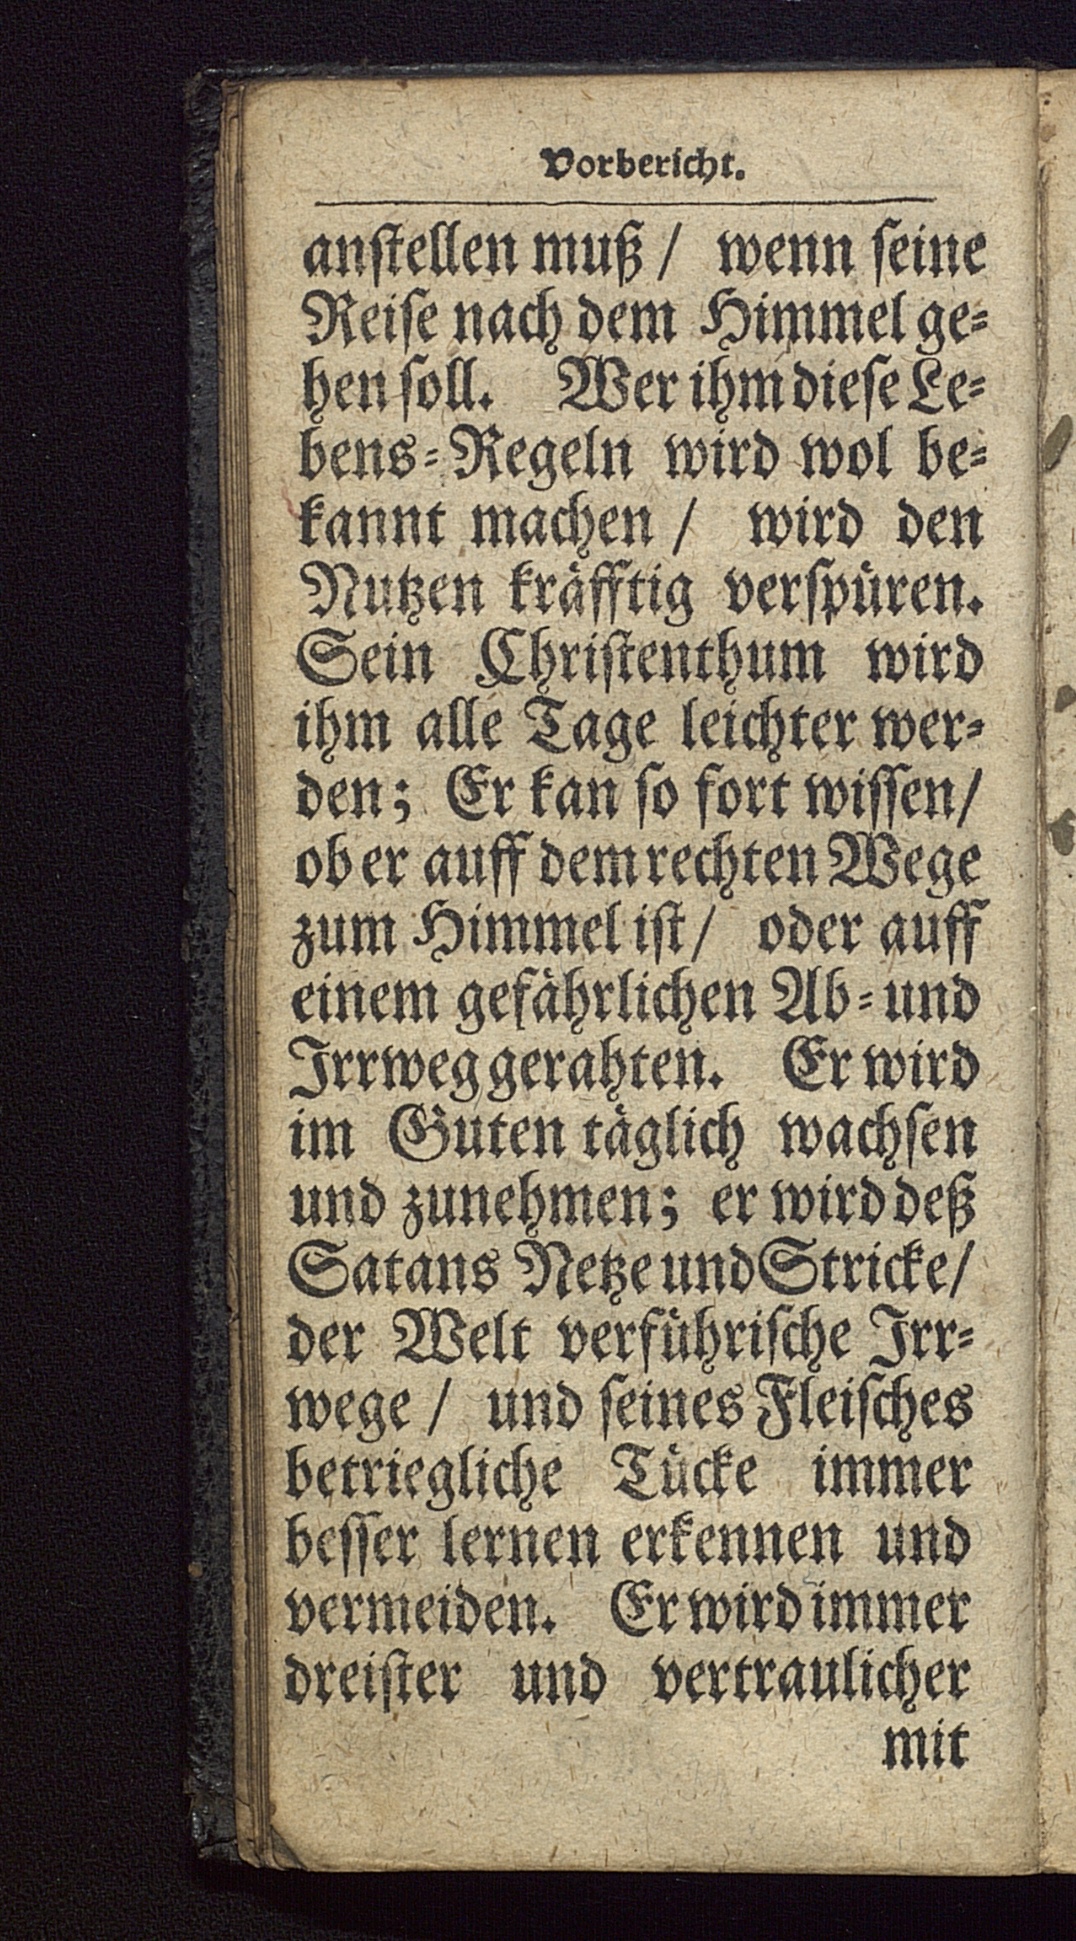 Vorbericht.
anſtellen muß / wenn ſeine
Reiſe nach dem Himmel ge-
hen ſoll. Wer ihm dieſe Le-
bens-Regeln wird wol be-
kannt machen / wird den
Nutzen kräfftig verſpüren.
Sein Chriſtenthum wird
ihm alle Tage leichter wer-
den; Er kan ſo fort wiſſen/
ob er auff dem rechten Wege
zum Himmel iſt/ oder auff
einem gefährlichen Ab- und
Irrweg gerahten. Er wird
im Guten täglich wachſen
und zunehmen; er wird deß
Satans Netze und Stricke/
der Welt verführiſche Irr-
wege / und ſeines Fleiſches
betriegliche Tücke immer
beſſer lernen erkennen und
vermeiden. Er wird immer
dreiſter und vertraulicher
mit